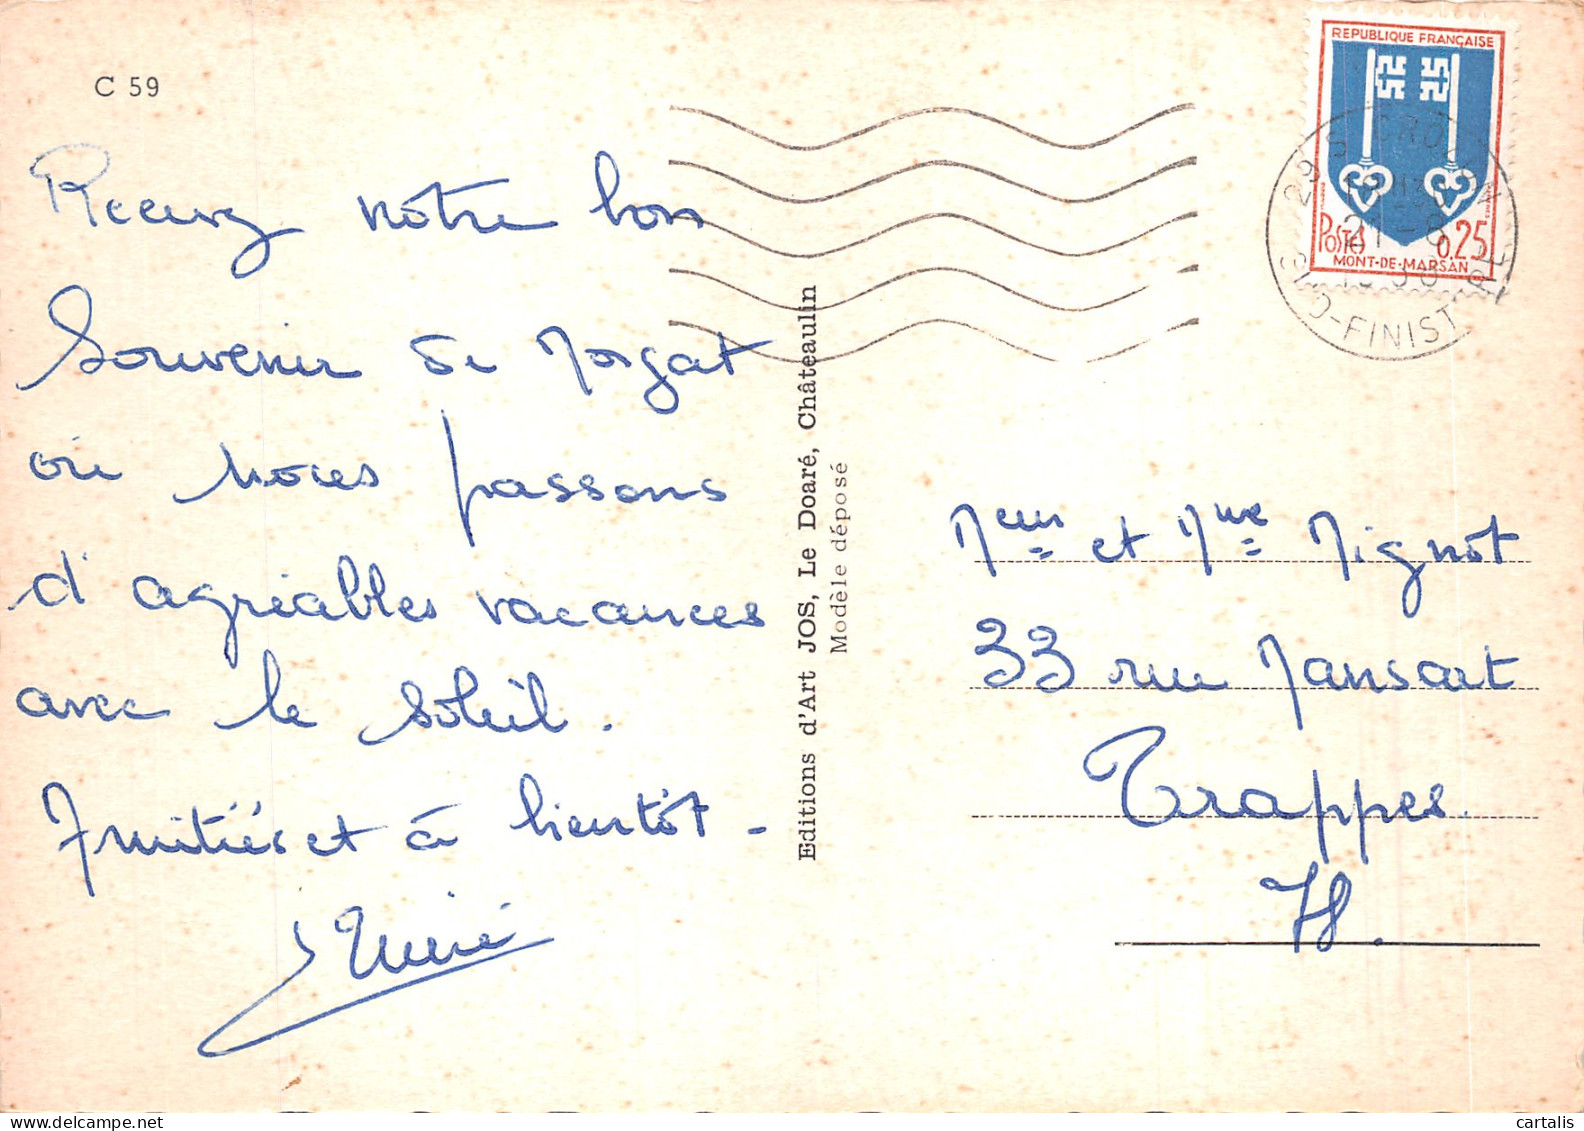 C 59
Recevez notre bon
souvenir de Morgat
où nous passons
d'agréables vacances
avec le soleil.
Amitiés et à bientôt -
Editions d'Art JOS, Le Doaré, Châteaulin
Modèle déposé
REPUBLIQUE FRANÇAISE
POSTES
0,25
MONT-DE-MARSAN
29 S CROZON
21 - 8
SUD-FINISTERE
Meur et Mme Mignot
33 rue Mansart
Trappes.
78.
cartalis